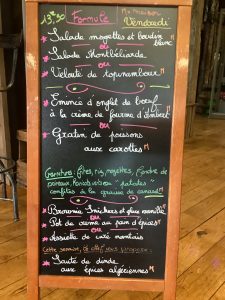 13€50 Formule Vendredi
Salade magrettes et boudin blanc
ou
Salade Montbéliarde
ou
Velouté de topinambour
Emincé d'onglet de boeuf
à la crème de fourme d'Ambert
ou
Gratin de poissons
aux carottes
Garniture: frites, riz, noisettes, fondue de
poireaux,
confites à la graisse de canard
Brownie Snickers et glace vanille
ou
Pot de crème au pain d'épices
ou
Assiette de
Cette semaine, le chef vous propose:
Sauté de dinde
aux épices algériennes